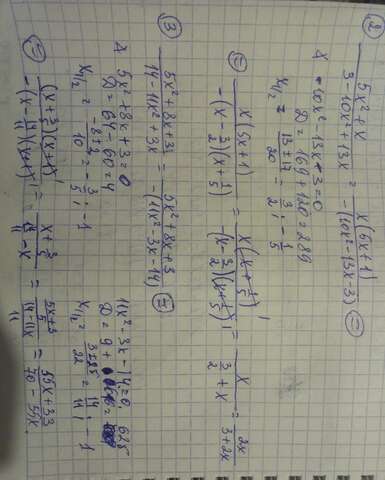 2) (5x²+x)/(3-10x²+13x) = x(5x+1)/-(10x²-13x-3) =
* 10x²-13x-3=0
D = 169+120=289
x₁/₂ = (13±17)/20 = 3/2 ; -1/5
= x(5x+1)/-(x-3/2)(x+1/5) = x(x+1/5)¹/-(x-3/2)(x+1/5)₁ = x/(3/2+x) = 2x/(3+2x)
3) (5x²+8x+3)/(14-11x²+3x) = (5x²+8x+3)/-(11x²-3x-14) =
* 5x²+8x+3=0 11x²-3x-14=0
D = 64-60=4 D = 9+ 616= 625
x₁/₂ = (-8±2)/10 = -3/5 ; -1 x₁/₂ = (3±25)/22 = 14/11 ; -1
= (x+3/5)(x+1)¹/-(x-14/11)(x+1)₁ = (x+3/5)/(14/11-x) = ((5x+3)/5)/((14-11x)/11) = (55x+33)/(70-55x)